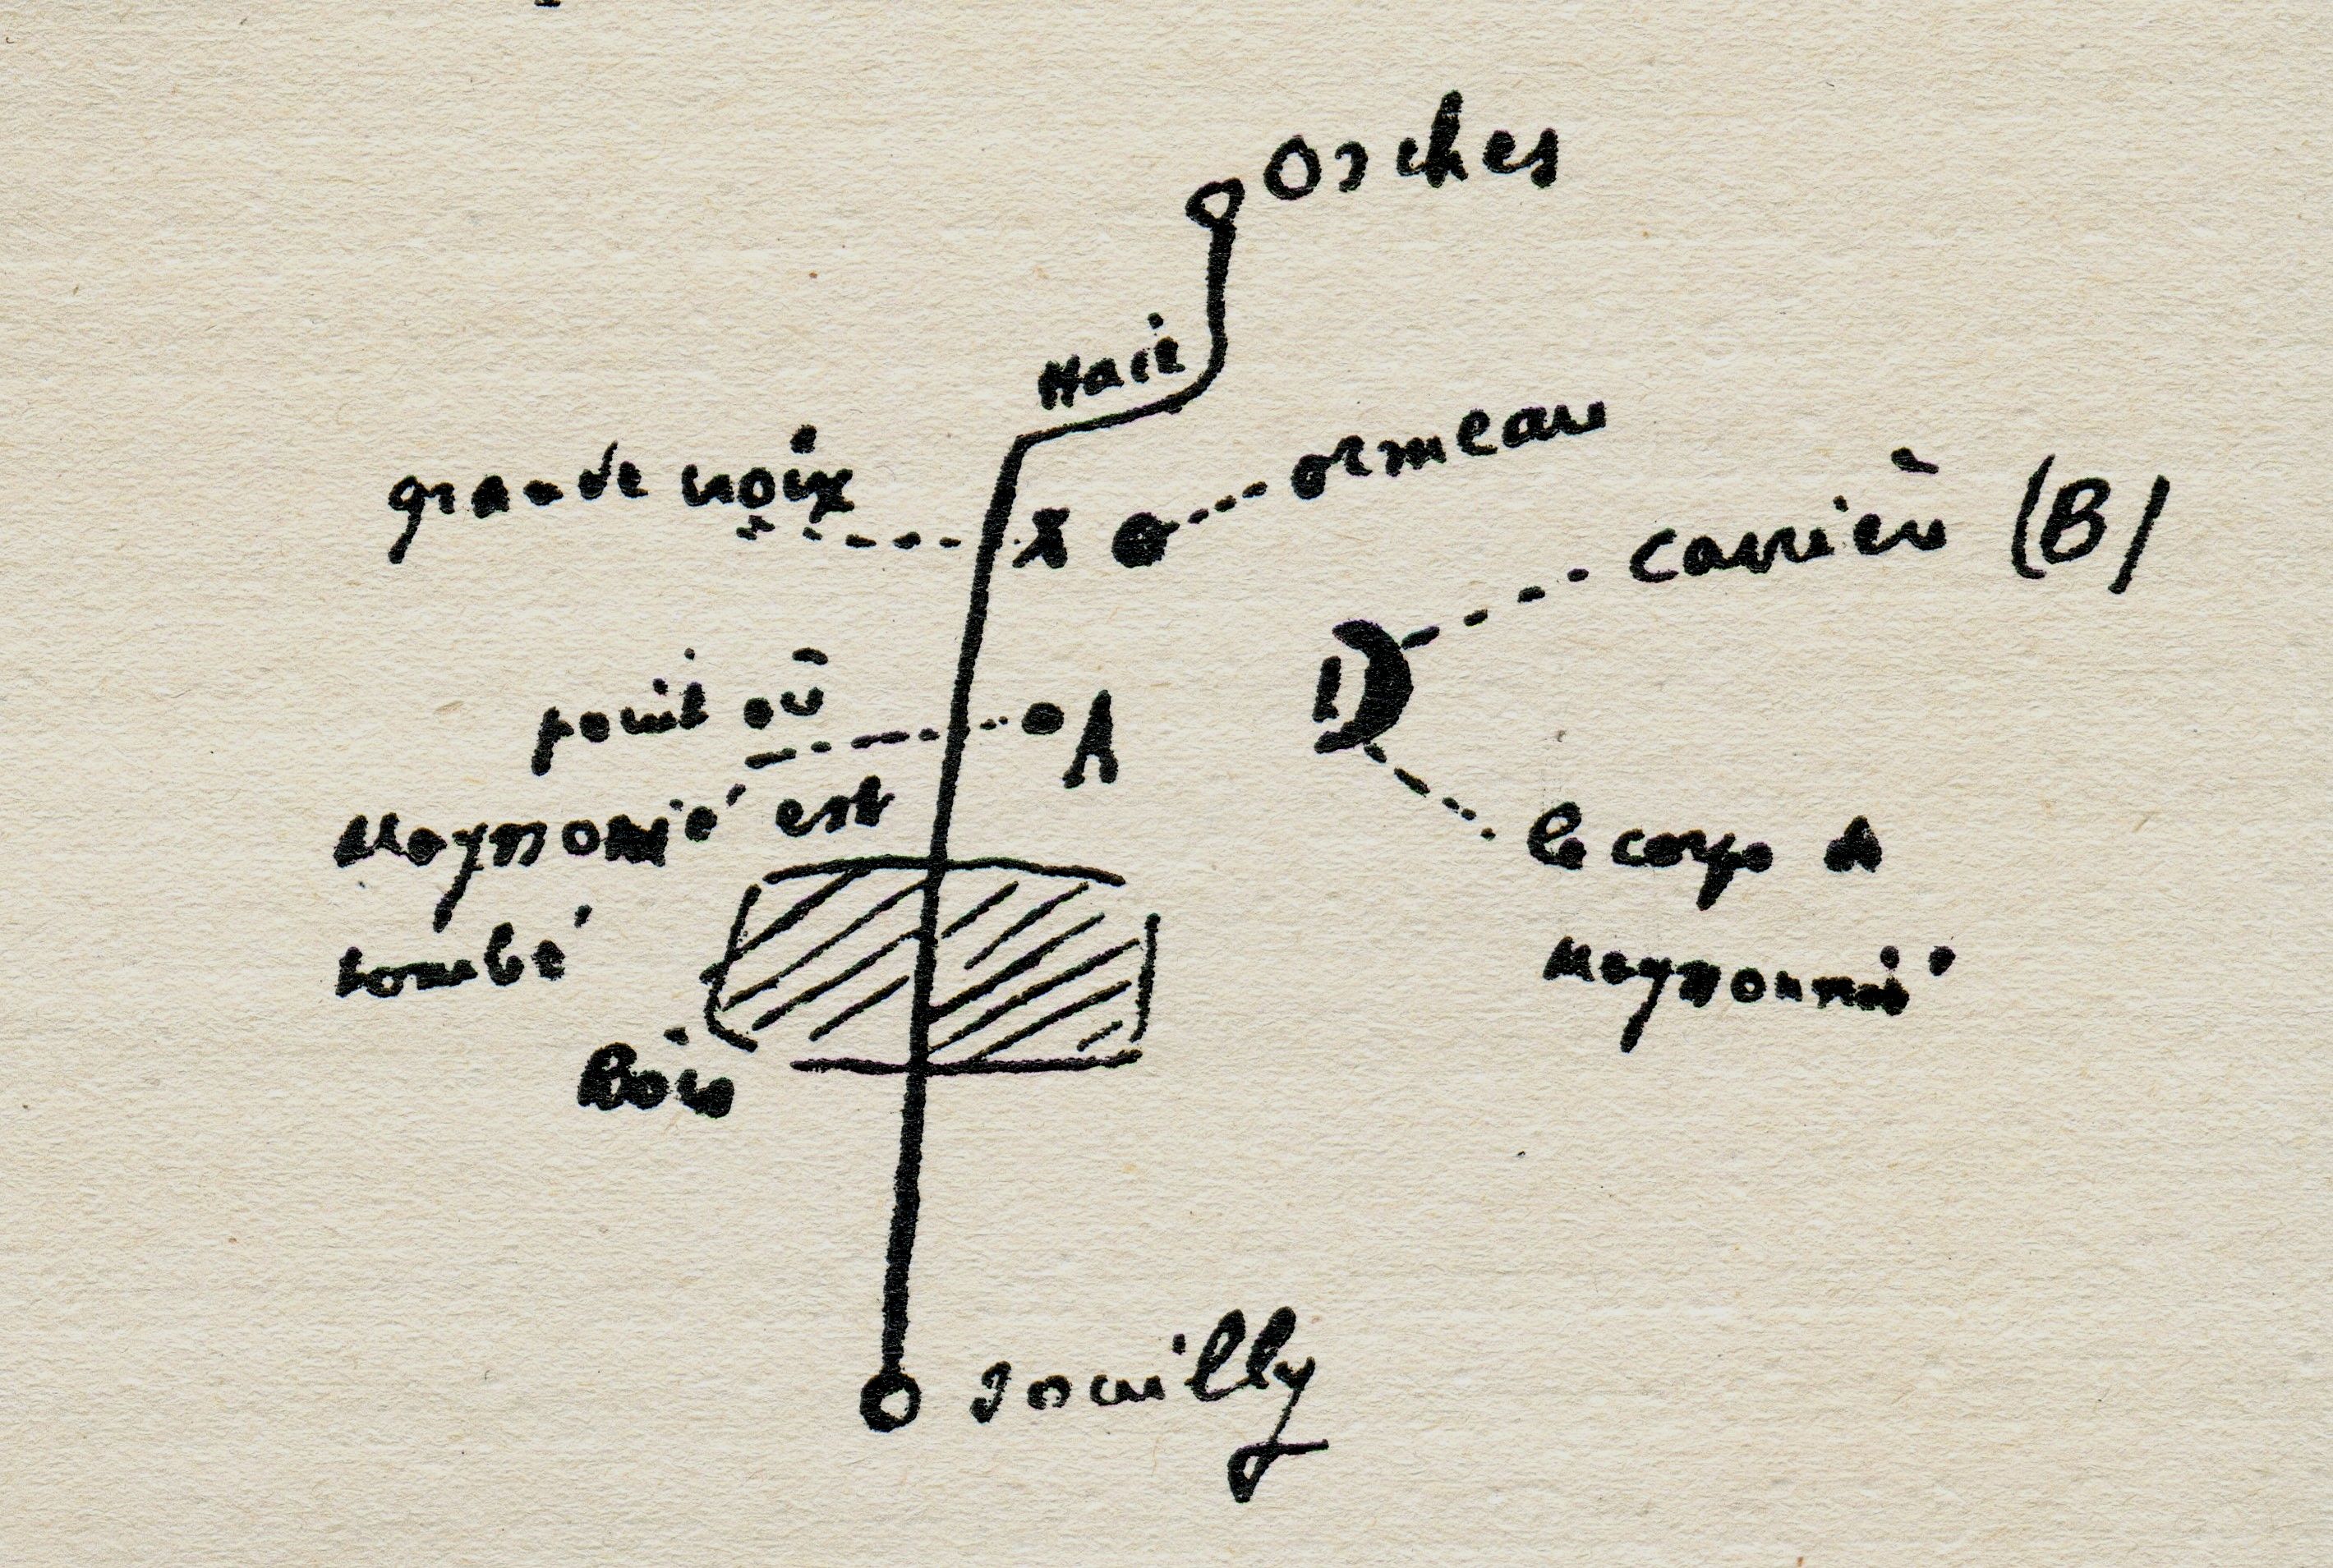 Orches
Haie
grande croix
ormeau
carrière (B)
point où
A
Meyssonié est
le corps de
tombé
Meyssonnié
Bois
Jouilly